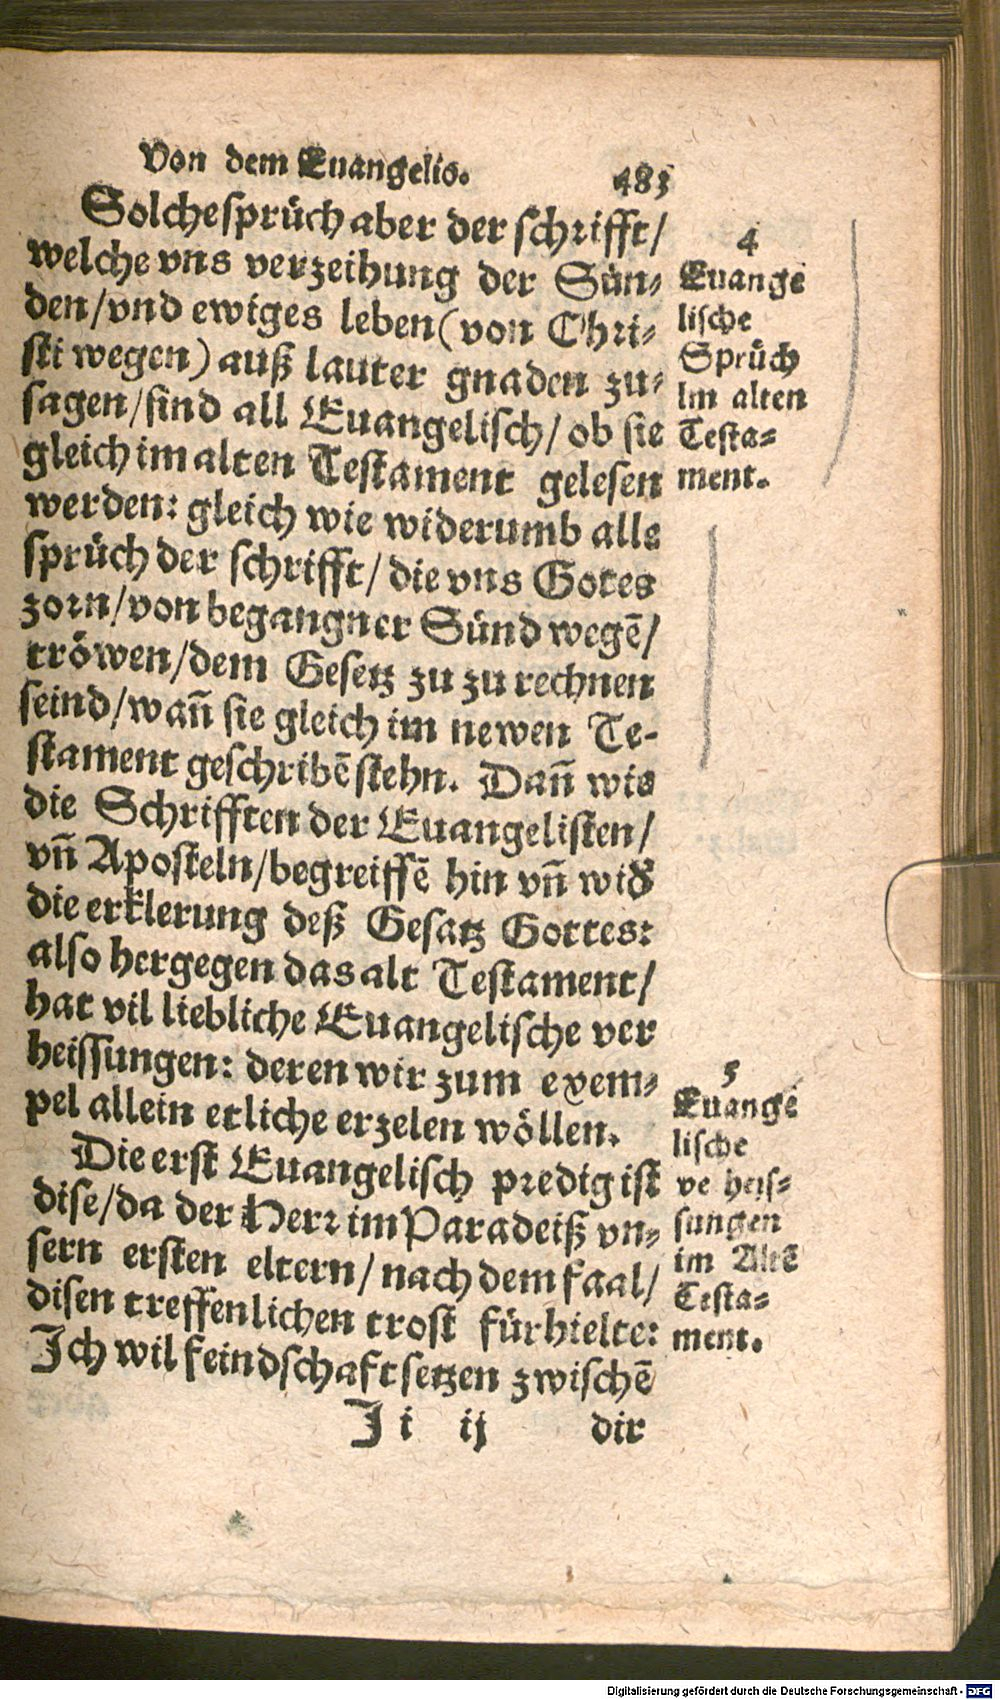 Von dem Euangelio. 483
Solche sprüch aber der schrifft/
welche vns verzeihung der Sün-
den/vnd ewiges leben (von Chri-
sti wegen) auß lauter gnaden zu-
sagen/sind all Euangelisch/ob sie
gleich im alten Testament gelesen
werden: gleich wie widerumb alle
sprüch der schrifft/die vns Gotes
zorn/von begangner Sünd wegē/
tröwen/dem Gesetz zu zu rechnen
seind/wañ sie gleich im newen Te-
stament geschribē stehn. Dañ wie
die Schrifften der Euangelisten/
vñ Aposteln/begreiffē hin vñ wid'
die erklerung deß Gesatz Gottes:
also hergegen das alt Testament/
hat vil liebliche Euangelische ver
heissungen: deren wir zum exem-
pel allein etliche erzelen wöllen.
Die erst Euangelisch predig ist
dise/da der Herr im Paradeiß vn-
sern ersten eltern/nach dem faal/
disen treffenlichen trost fürhielte:
Ich wil feindschaft setzen zwischē
I i ij dir
4
Euange
lische
Sprüch
Im alten
Testa-
ment.
5
Euange
lische
ve heis-
sungen
im Altē
Testa-
ment.
Digitalisierung gefördert durch die Deutsche Forschungsgemeinschaft - DFG